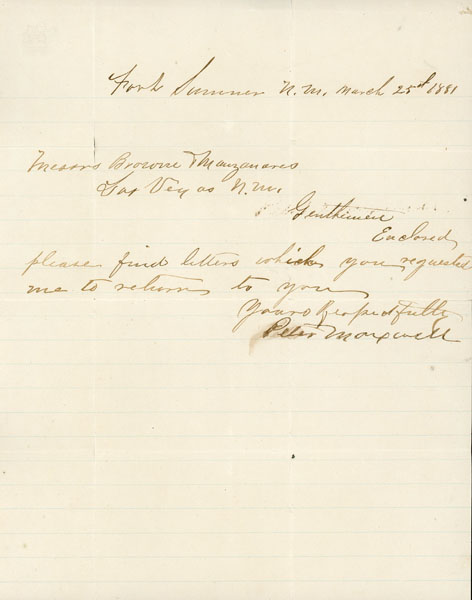 Fort Sumner N.M. March 25st 1881
Messrs Browne & Manzanares
Las Vegas N.M.
Gentlemen
Enclosed
please find letters which you requested
me to return to you
Yours Respectfully
Peter Maxwell